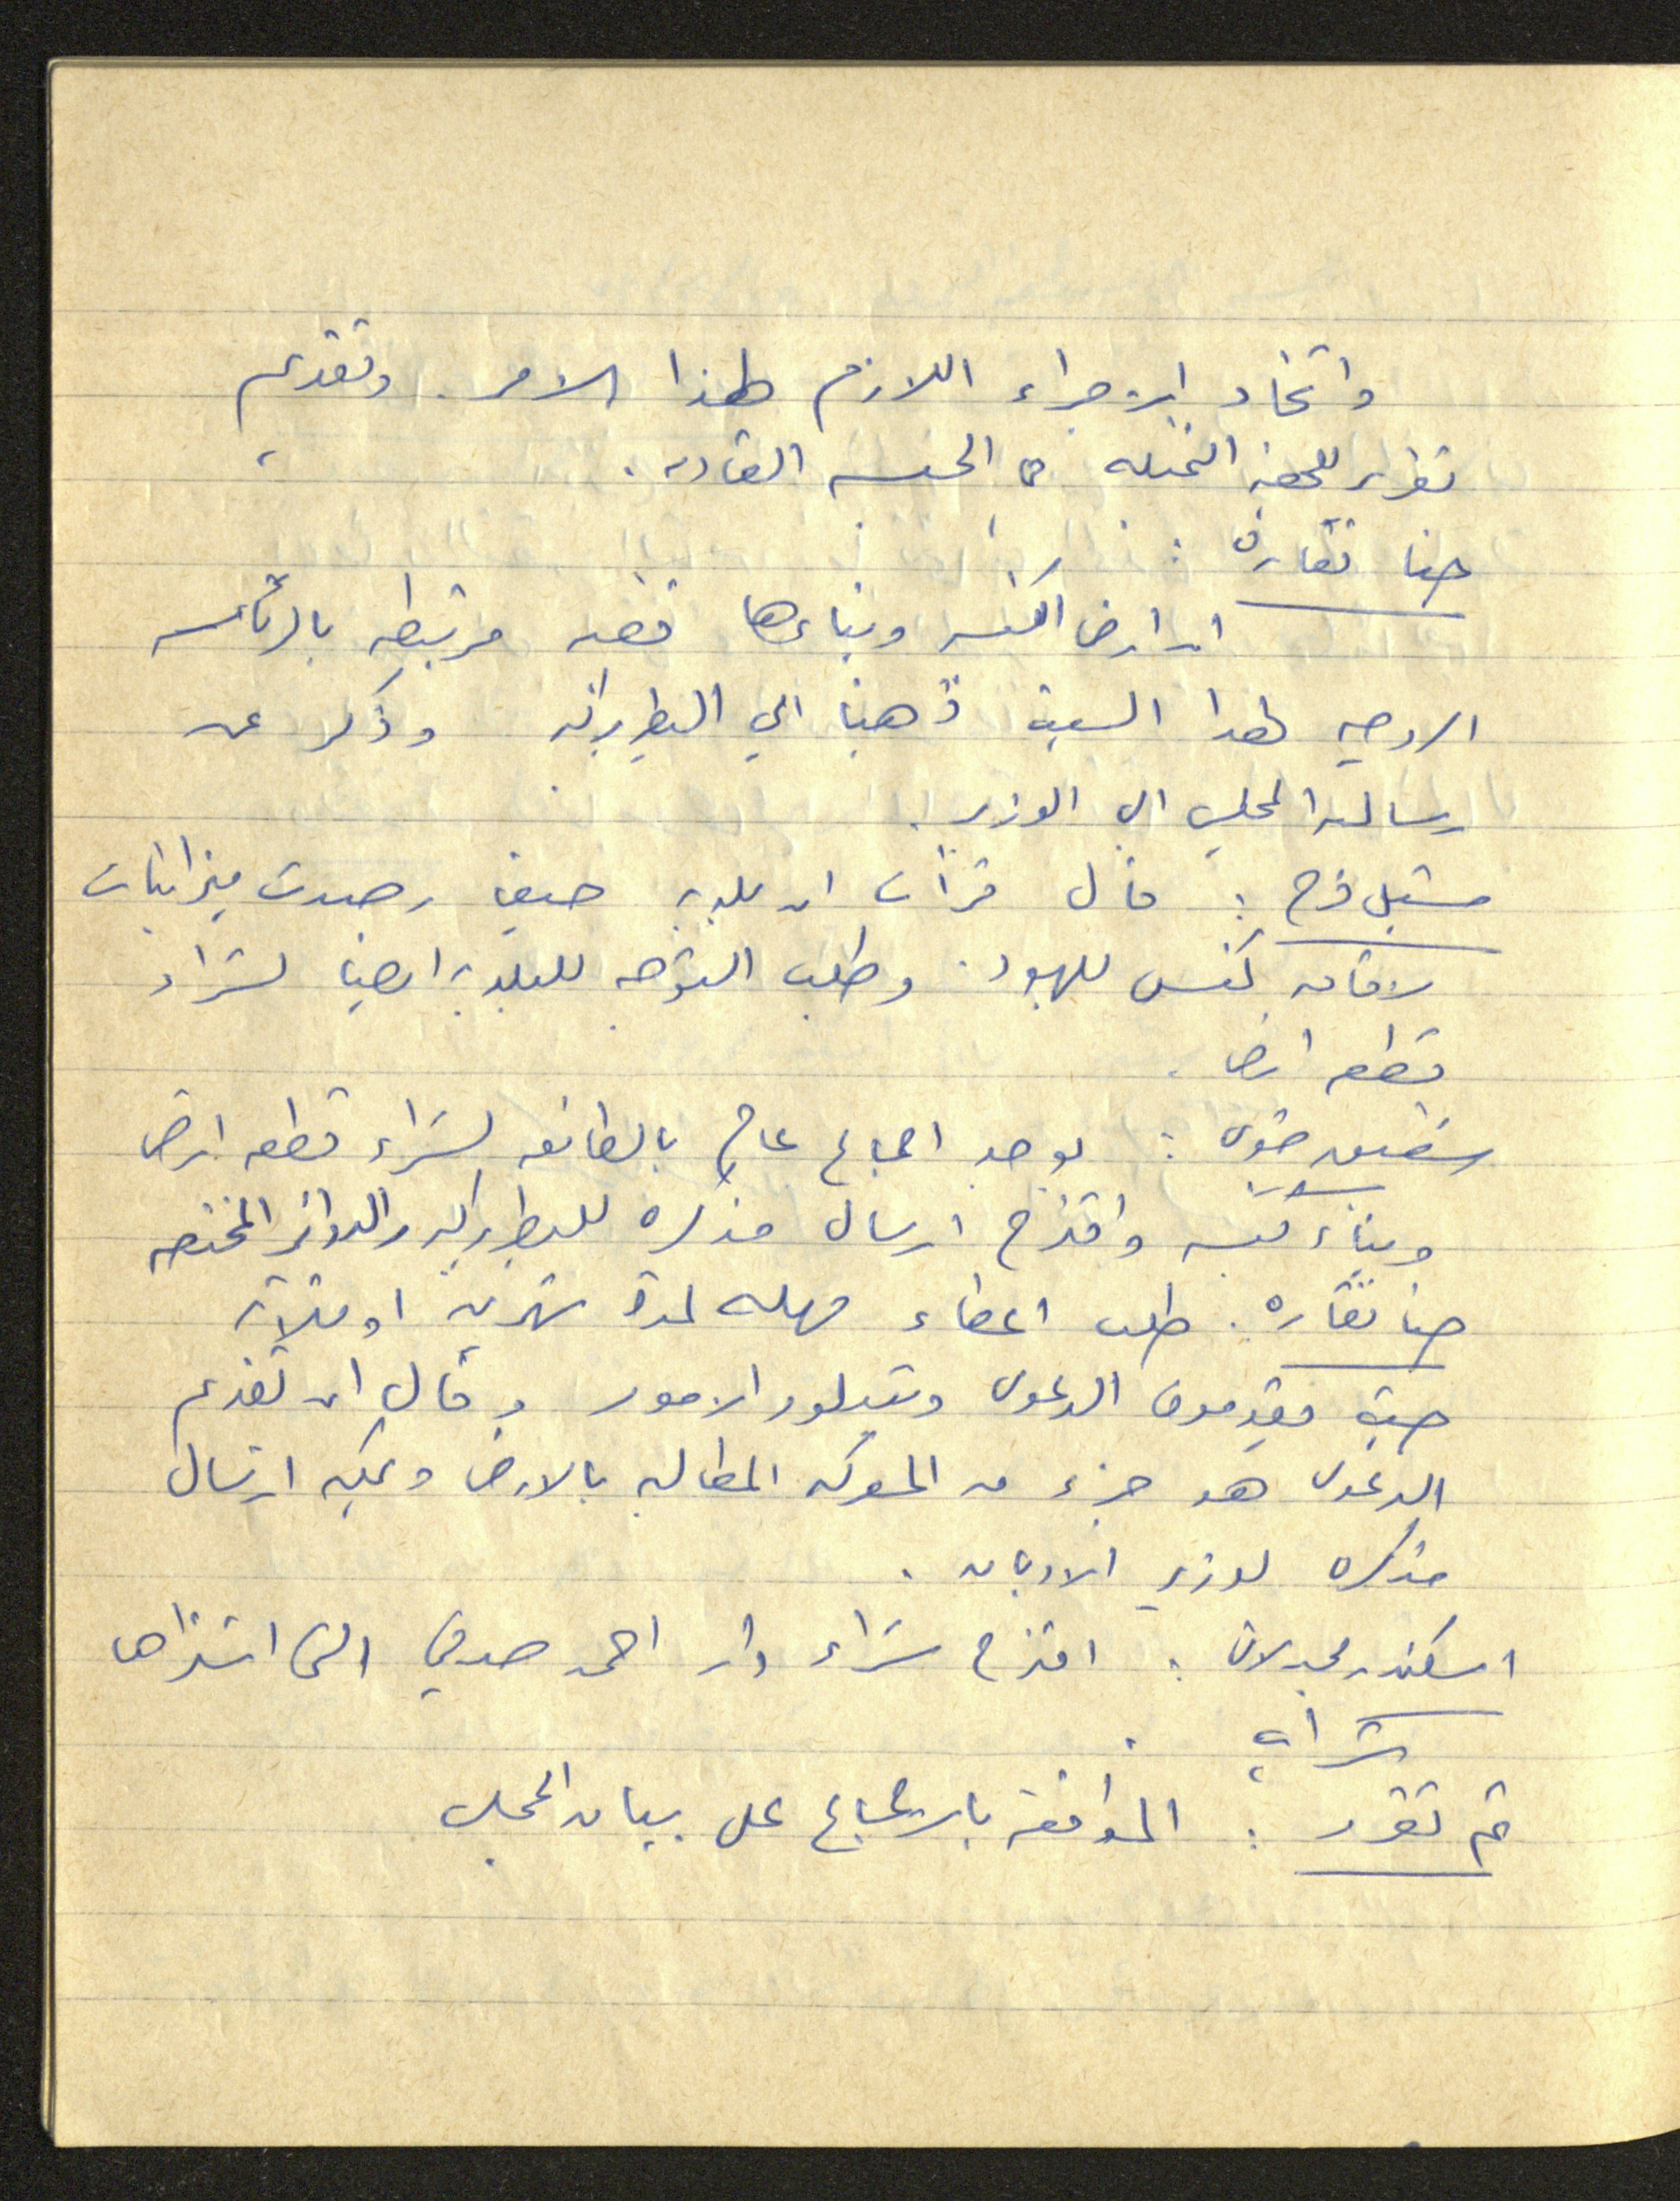 واتخاد الاجراء اللازم لهذا الامر. وتقديم
تقرير للجنه الممثله في الجلسه القادمه.
حنا نقاره :
ان ارض الكنيسه وبناءها قضيه مرتبطه بالرئاسه
الروحيه لهذا السبب ذهبنا الى البطريركيه وذكر عن
رسالة المجلس الى الوزير.
ميشيل فرح : قال قرأت ان بلدية حيفا رصدت ميزانيات
لاقامه كنس لليهود. وطلب التوجه للبلديه ايضا لشراء
قطعه ارض.
شفيق خوري : يوجد اجماع عام بالطائفه لشراء قطعه ارض
وبناء كنيسه واقترح ارسال مذكره للبطريركيه والدوائر المختصه
حنا نقاره. طلب اعطاء مهله لمدة شهرين او ثلاثه
حيث يقدمون الدعوى وتتبلور الامور وقال ان تقديم
الدعوى هو جزء من المعركه المطالبه بالارض ويمكن ارسال
مذكره لوزير الاديان.
اسكندر مجدلاني : اقترح شراء دار احمد صدقي التي اشتراها
ثم تقرر : الموافقه بالاجماع على بيان المجلس